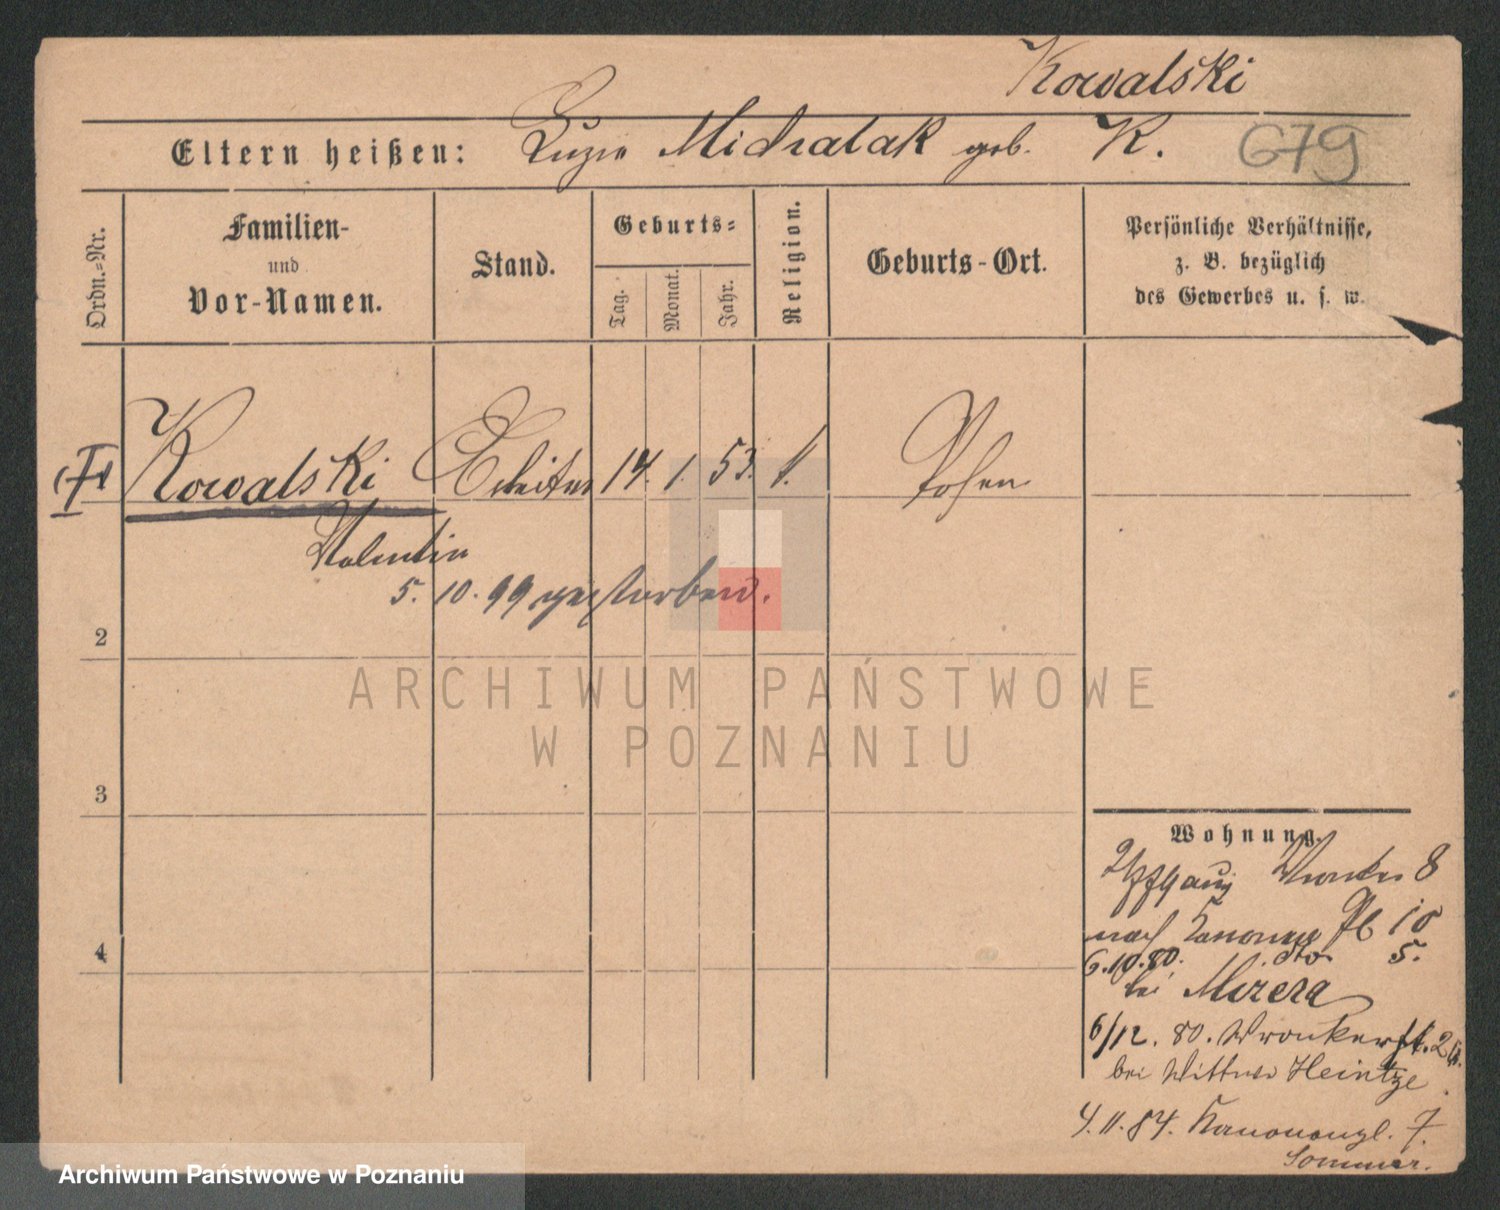 Kowalski
Eltern heißen: Luzie Michalak geb. K. 679
Ordn.-Nr.
Familien-
und
Vor-Namen.
Stand.
Geburts-
Tag.
Monat.
Jahr.
Religion.
Geburts-Ort.
Persönliche Verhältnisse,
z. B. bezüglich
des Gewerbes u. s. w.
Kowalski Arbeiter 14. 1. 53. Posen
Valentin
5. 10. 99 gestorben.
2
ARCHIWUM PAŃSTWOWE
W POZNANIU
3
4
Wohnung.
8
nach Kanonen Pl 10
6.10.80. dto 5.
bei
6/12. 80. Wronkerstr. 2
bei Wittwe Heintze
4.11.84. Kanonenpl. 7.
Sommer.
Archiwum Państwowe w Poznaniu